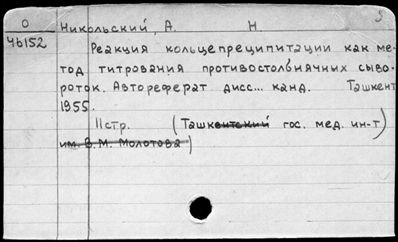 О
5
Никольский, А. Н
46152
Реакция кольцепреципитации как ме-
тод титрования противостолбнячных сыво-
роток. Автореферат дисс... канд. Ташкент
1955.
11стр. (Ташкентский гос. мед. ин-т)
им. В. М. Молотова)